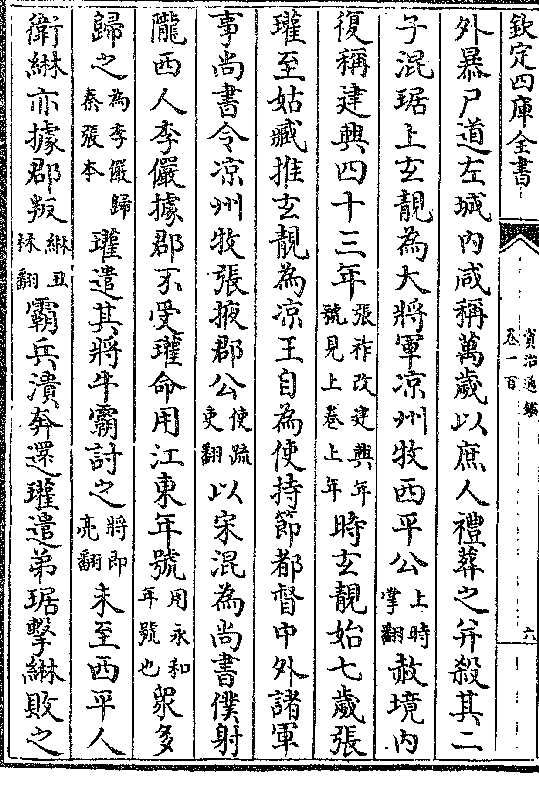 欽定四庫全書
資治通鑑
卷一百
六
外暴尸道左城內咸稱萬歲以庶人禮葬之并殺其二
子混琚上玄靚為大將軍凉州牧西平公上時掌翻赦境內
復稱建興四十三年張祚改建興年號見上卷上年時玄靚始七歲張
瓘至姑臧推玄靚為凉王自為使持節都督中外諸軍
事尚書令凉州牧張掖郡公使疏吏翻以宋混為尚書僕射
隴西人李儼據郡不受瓘命用江東年號用永和年號也衆多
歸之為李儼歸秦張本瓘遣其將牛霸討之將即亮翻未至西平人
衛綝亦據郡叛綝丑林翻霸兵潰奔還瓘遣弟琚擊綝敗之